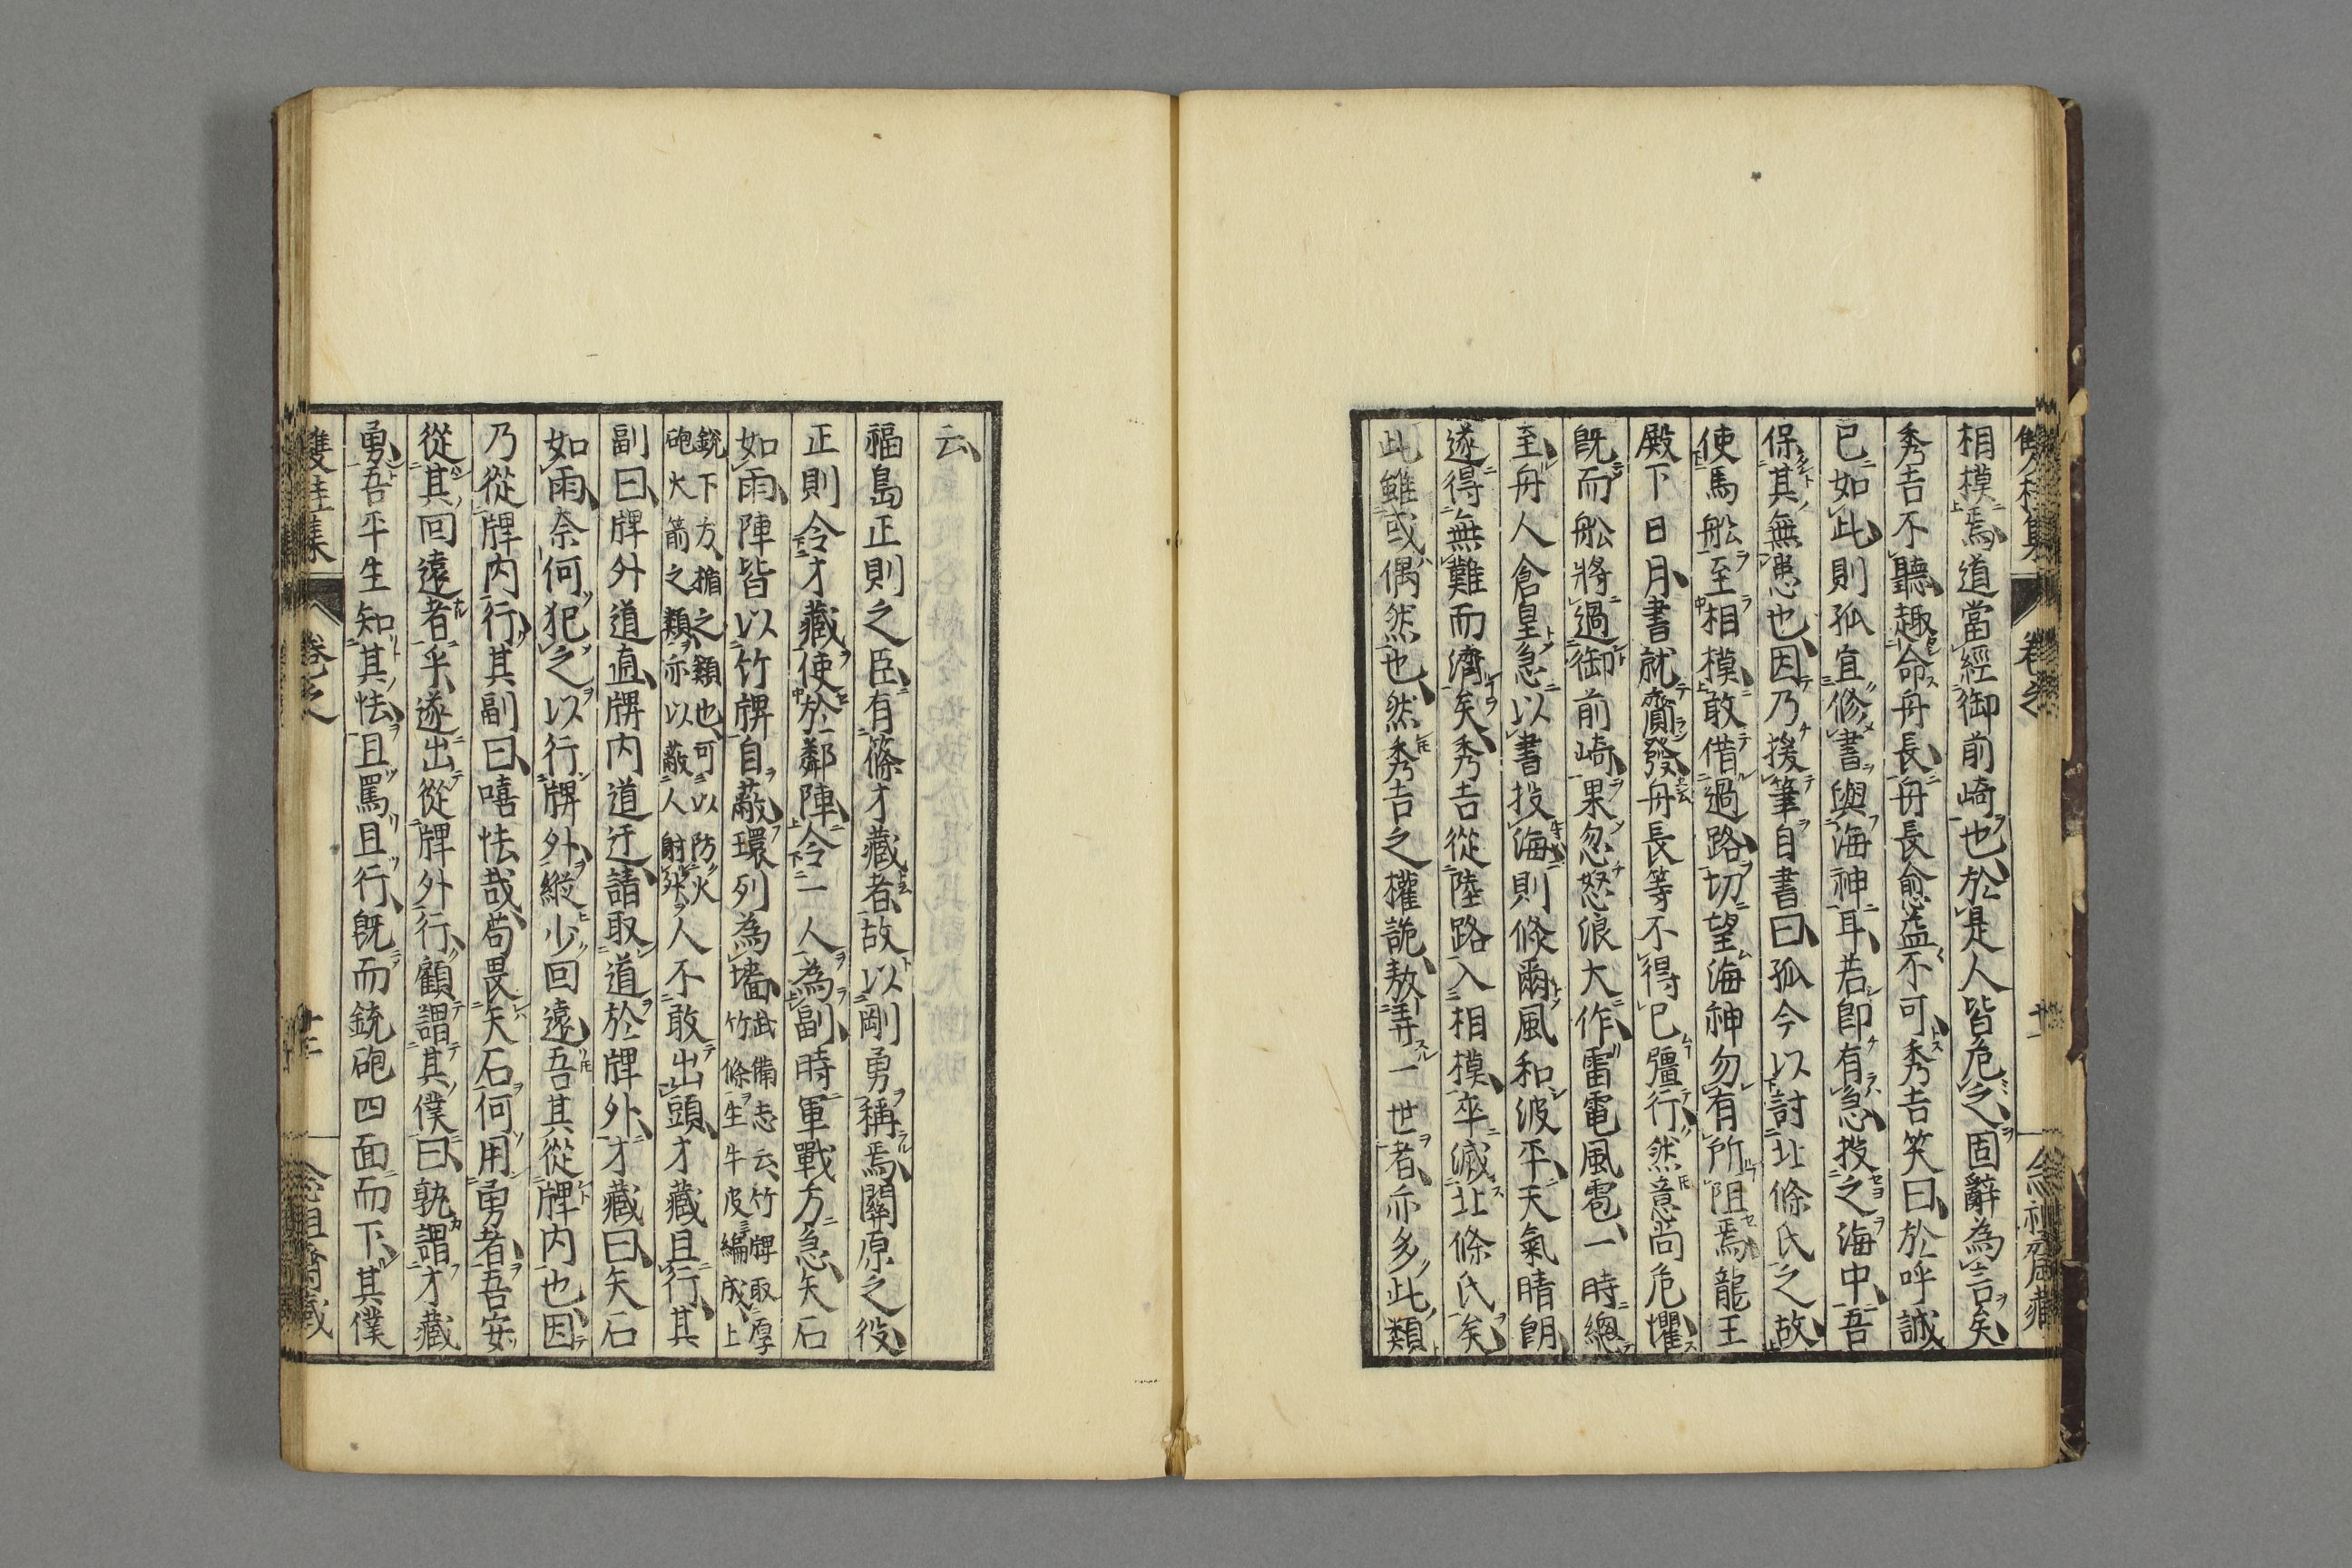 相模焉道當經御前崎也於是人皆危之固辭為言矣
秀吉不聽趣命舟長舟長愈益不可秀吉笑曰於呼誠
已如此則孤宜修書與海神耳若即有急投之海中吾
保其無患也因乃援筆自書曰孤今以討北條氏之故
使馬船至相模敢借過路切望海神勿有所阻焉龍王
殿下日月書就齎發舟長等不得已彊行然意尚危懼
既而船將過御前崎果忽怒浪大作雷電風雹一時總
至舟人倉皇急以書投海則倐爾風和波平天氣晴朗
遂得無難而濟矣秀吉從陸路入相模卒滅北條氏矣
此雖或偶然也然秀吉之權詭敖弄一世者亦多此類
云
福島正則之臣有篠才藏者故以剛勇稱焉關原之役
正則令才藏使於鄰陣令一人為副時軍戰方急矢石
如雨陣皆以竹牌自蔽環列為墻武備志云竹牌取厚竹條生牛皮編成上
銳下方楯之類也可以防火砲火箭之類亦以蔽人射狀人不敢出頭才藏且行其
副曰牌外道直牌内道迂請取道於牌外才藏曰矢石
如雨奈何犯之以行牌外縱少回遠吾其從牌内也因
乃從牌内行其副曰嘻怯哉苟畏矢石何用勇者吾安
從其回遠者乎遂出從牌外行顧謂其僕曰孰謂才藏
勇吾平生知其怯且罵且行既而銃砲四面而下其僕
雙桂集 卷之 廿二